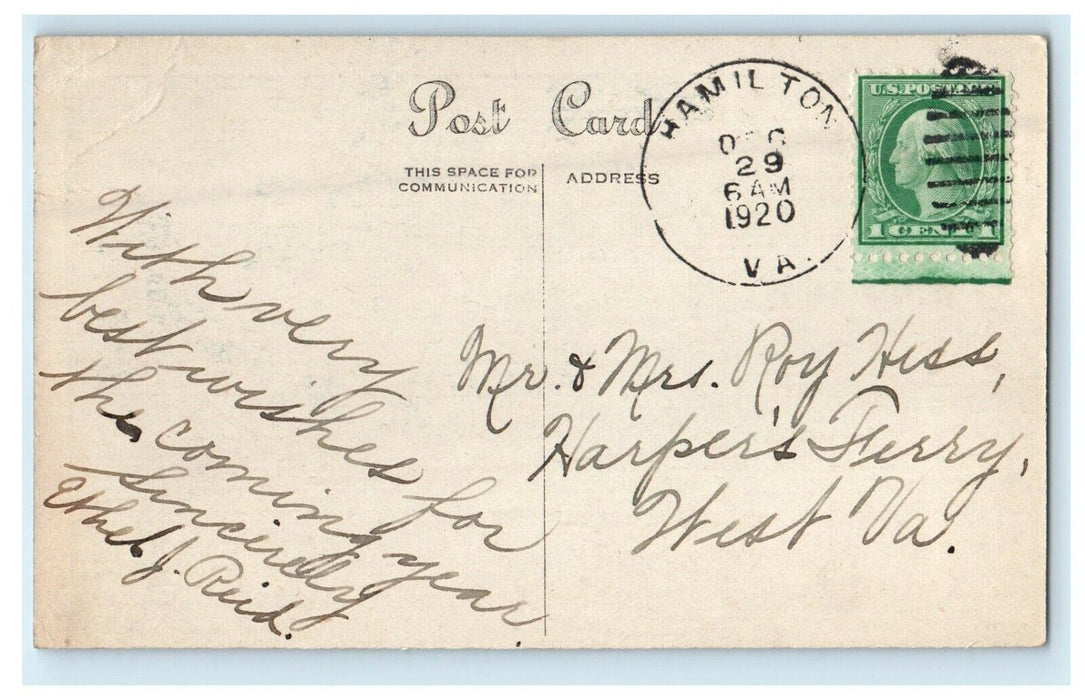 Post Card
THIS SPACE FOR
COMMUNICATION
ADDRESS
HAMILTON
DEC
29
6 AM
1920
VA.
U.S. POSTAGE
1 CENT 1
With very
best wishes for
the coming year.
Sincerely
Ethel J. Reid.
Mr. & Mrs. Roy Hess,
Harper's Ferry,
West Va.